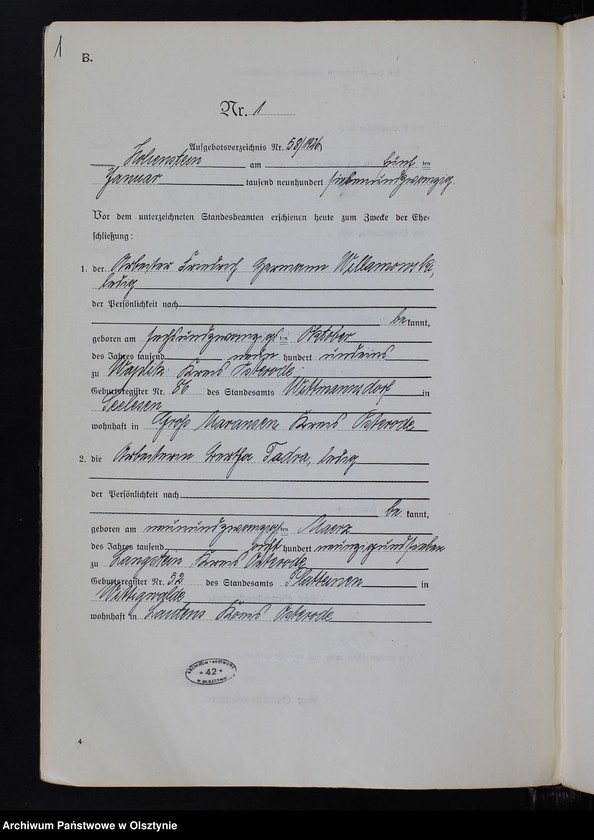 1
B.
Nr. 1
Aufgebotsverzeichnis Nr. 58/1926
Hohenstein am fünf ten
Januar tausend neunhundert siebenundzwanzig.
Vor dem unterzeichneten Standesbeamten erschienen heute zum Zwecke der Ehe-
schließung:
1. der Arbeiter Friedrich Hermann Willamowski,
ledig
der Persönlichkeit nach
be kannt,
geboren am sechsundzwanzigsten Oktober
des Jahres tausend neun hundert undeins
zu Waplitz Kreis Osterode,
Geburtsregister Nr. 86 des Standesamts Wittmannsdorf in
Seelesen
wohnhaft in Groß Maransen Kreis Osterode
2. die Arbeiterin Bertha ledig
der Persönlichkeit nach
be kannt,
geboren am neunundzwanzigsten Maerz
des Jahres tausend acht hundert neunzigundsieben
zu Langstein Kreis Osterode
Geburtsregister Nr. 32 des Standesamts Platteinen in
Wittigwalde
wohnhaft in Lautens Kreis Osterode
ARCHIWUM PAŃSTWOWE
* 42 *
W OLSZTYNIE
4
Archiwum Państwowe w Olsztynie